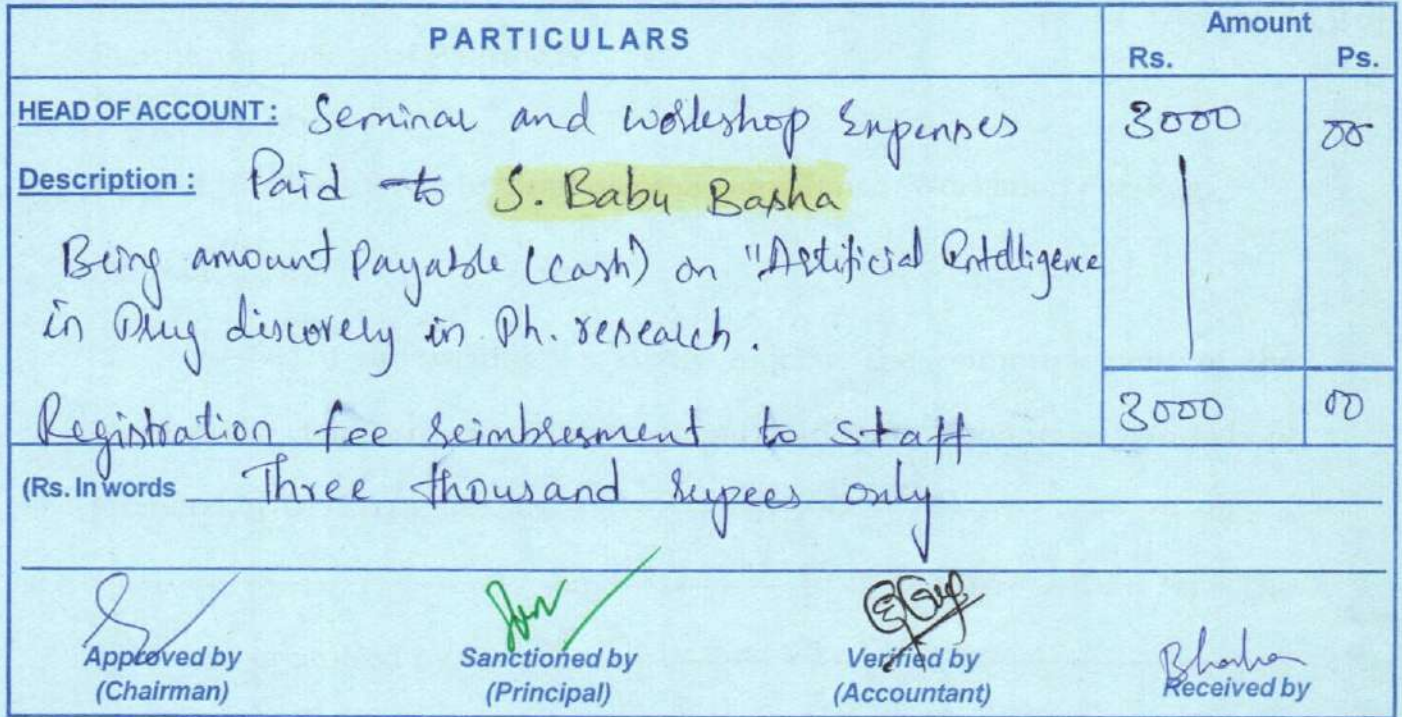 PARTICULARS
Amount
Rs. Ps.
HEAD OF ACCOUNT : Seminar and workshop Expenses 3000 00
Description : Paid to S. Babu Basha
Being amount Payable (Cash) on "Artificial Intelligence
in Drug discovery in Ph. research.
3000 00
Registration fee reimbresment to staff
(Rs. In words Three thousand rupees only
Approved by Sanctioned by Verified by Received by
(Chairman) (Principal) (Accountant)